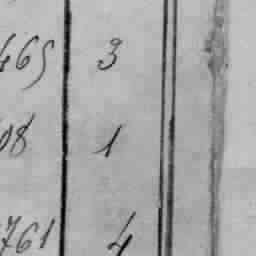 465 3
08 1
761 4